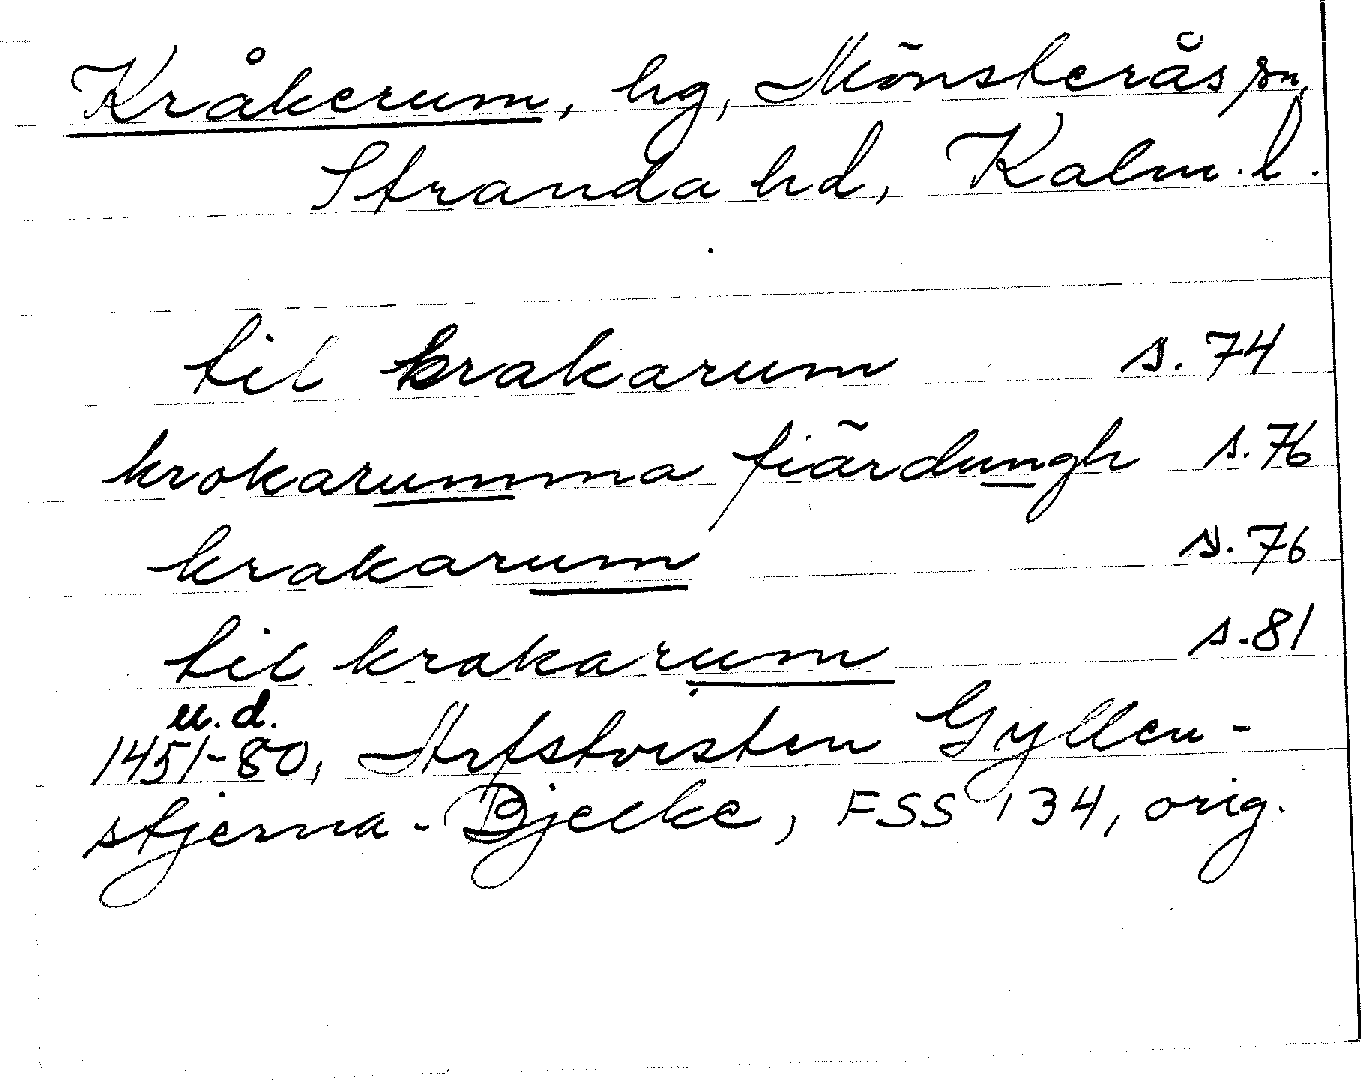 Kråkerum, hg, Mönsterås sn,
Stranda hd, Kalm. l.
til krakarum s. 74
krokarumma fiärdungh s. 76
krakarum s. 76
til krakarum s. 81
u. d.
1451-80, Arfstvisten Gyllen-
stjerna-Bjelke, FSS 134, orig.